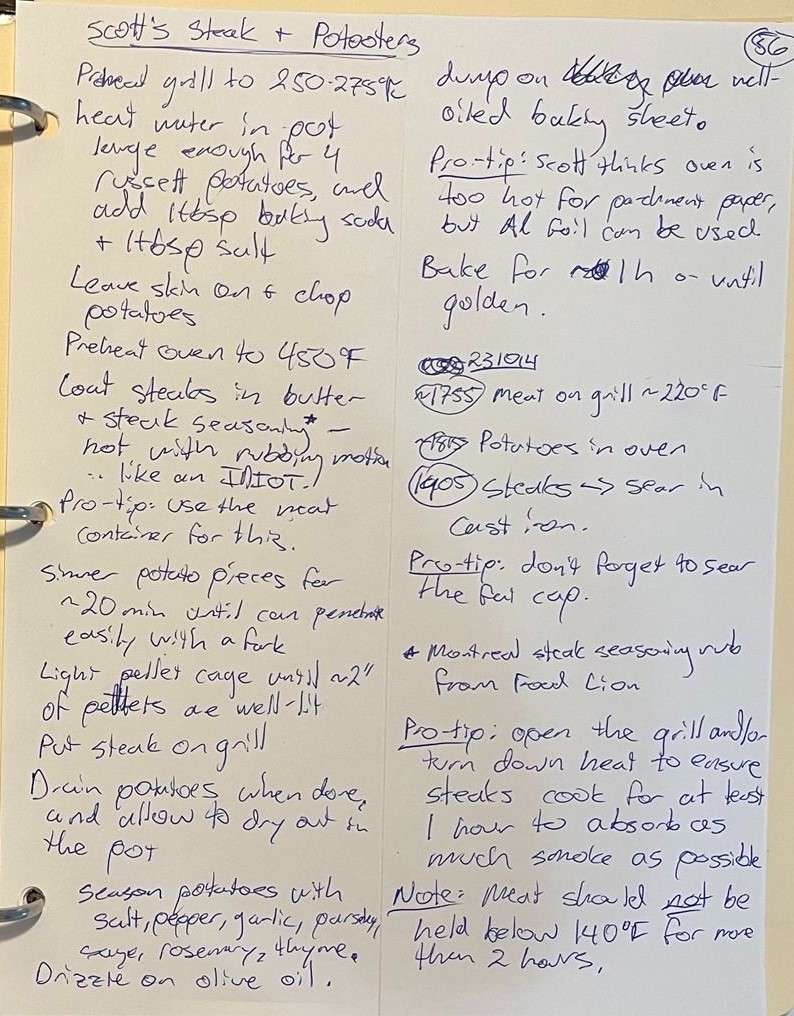 Scott's Steak + Potooters
86
Preheat grill to 250-275°F
heat water in pot
large enough for 4
russett potatoes, and
add 1tbsp baking soda
+ 1tbsp salt
Leave skin on & chop
potatoes
Preheat oven to 450°F
Coat steaks in butter
& steak seasoning* —
not with rubbing motion
like an IDIOT!
Pro-tip: use the meat
container for this.
Simmer potato pieces for
~20 min until can penetrate
easily with a fork
Light pellet cage until ~2"
of pellets are well-lit
Put steak on grill
Drain potatoes when done,
and allow to dry out in
the pot
Season potatoes with
salt, pepper, garlic, parsley,
sage, rosemary, thyme.
Drizzle on olive oil.
dump on well-
oiled baking sheet.
Pro-tip: Scott thinks oven is
too hot for parchment paper,
but Al foil can be used.
Bake for 1h or until
golden.
231014
~1755 meat on grill ~220°F
Potatoes in oven
1905 steaks → sear in
cast iron.
Pro-tip: don't forget to sear
the fat cap.
* Montreal steak seasoning rub
from Food Lion
Pro-tip: open the grill and/or
turn down heat to ensure
steaks cook for at least
1 hour to absorb as
much smoke as possible
Note: Meat should not be
held below 140°F for more
then 2 hours.